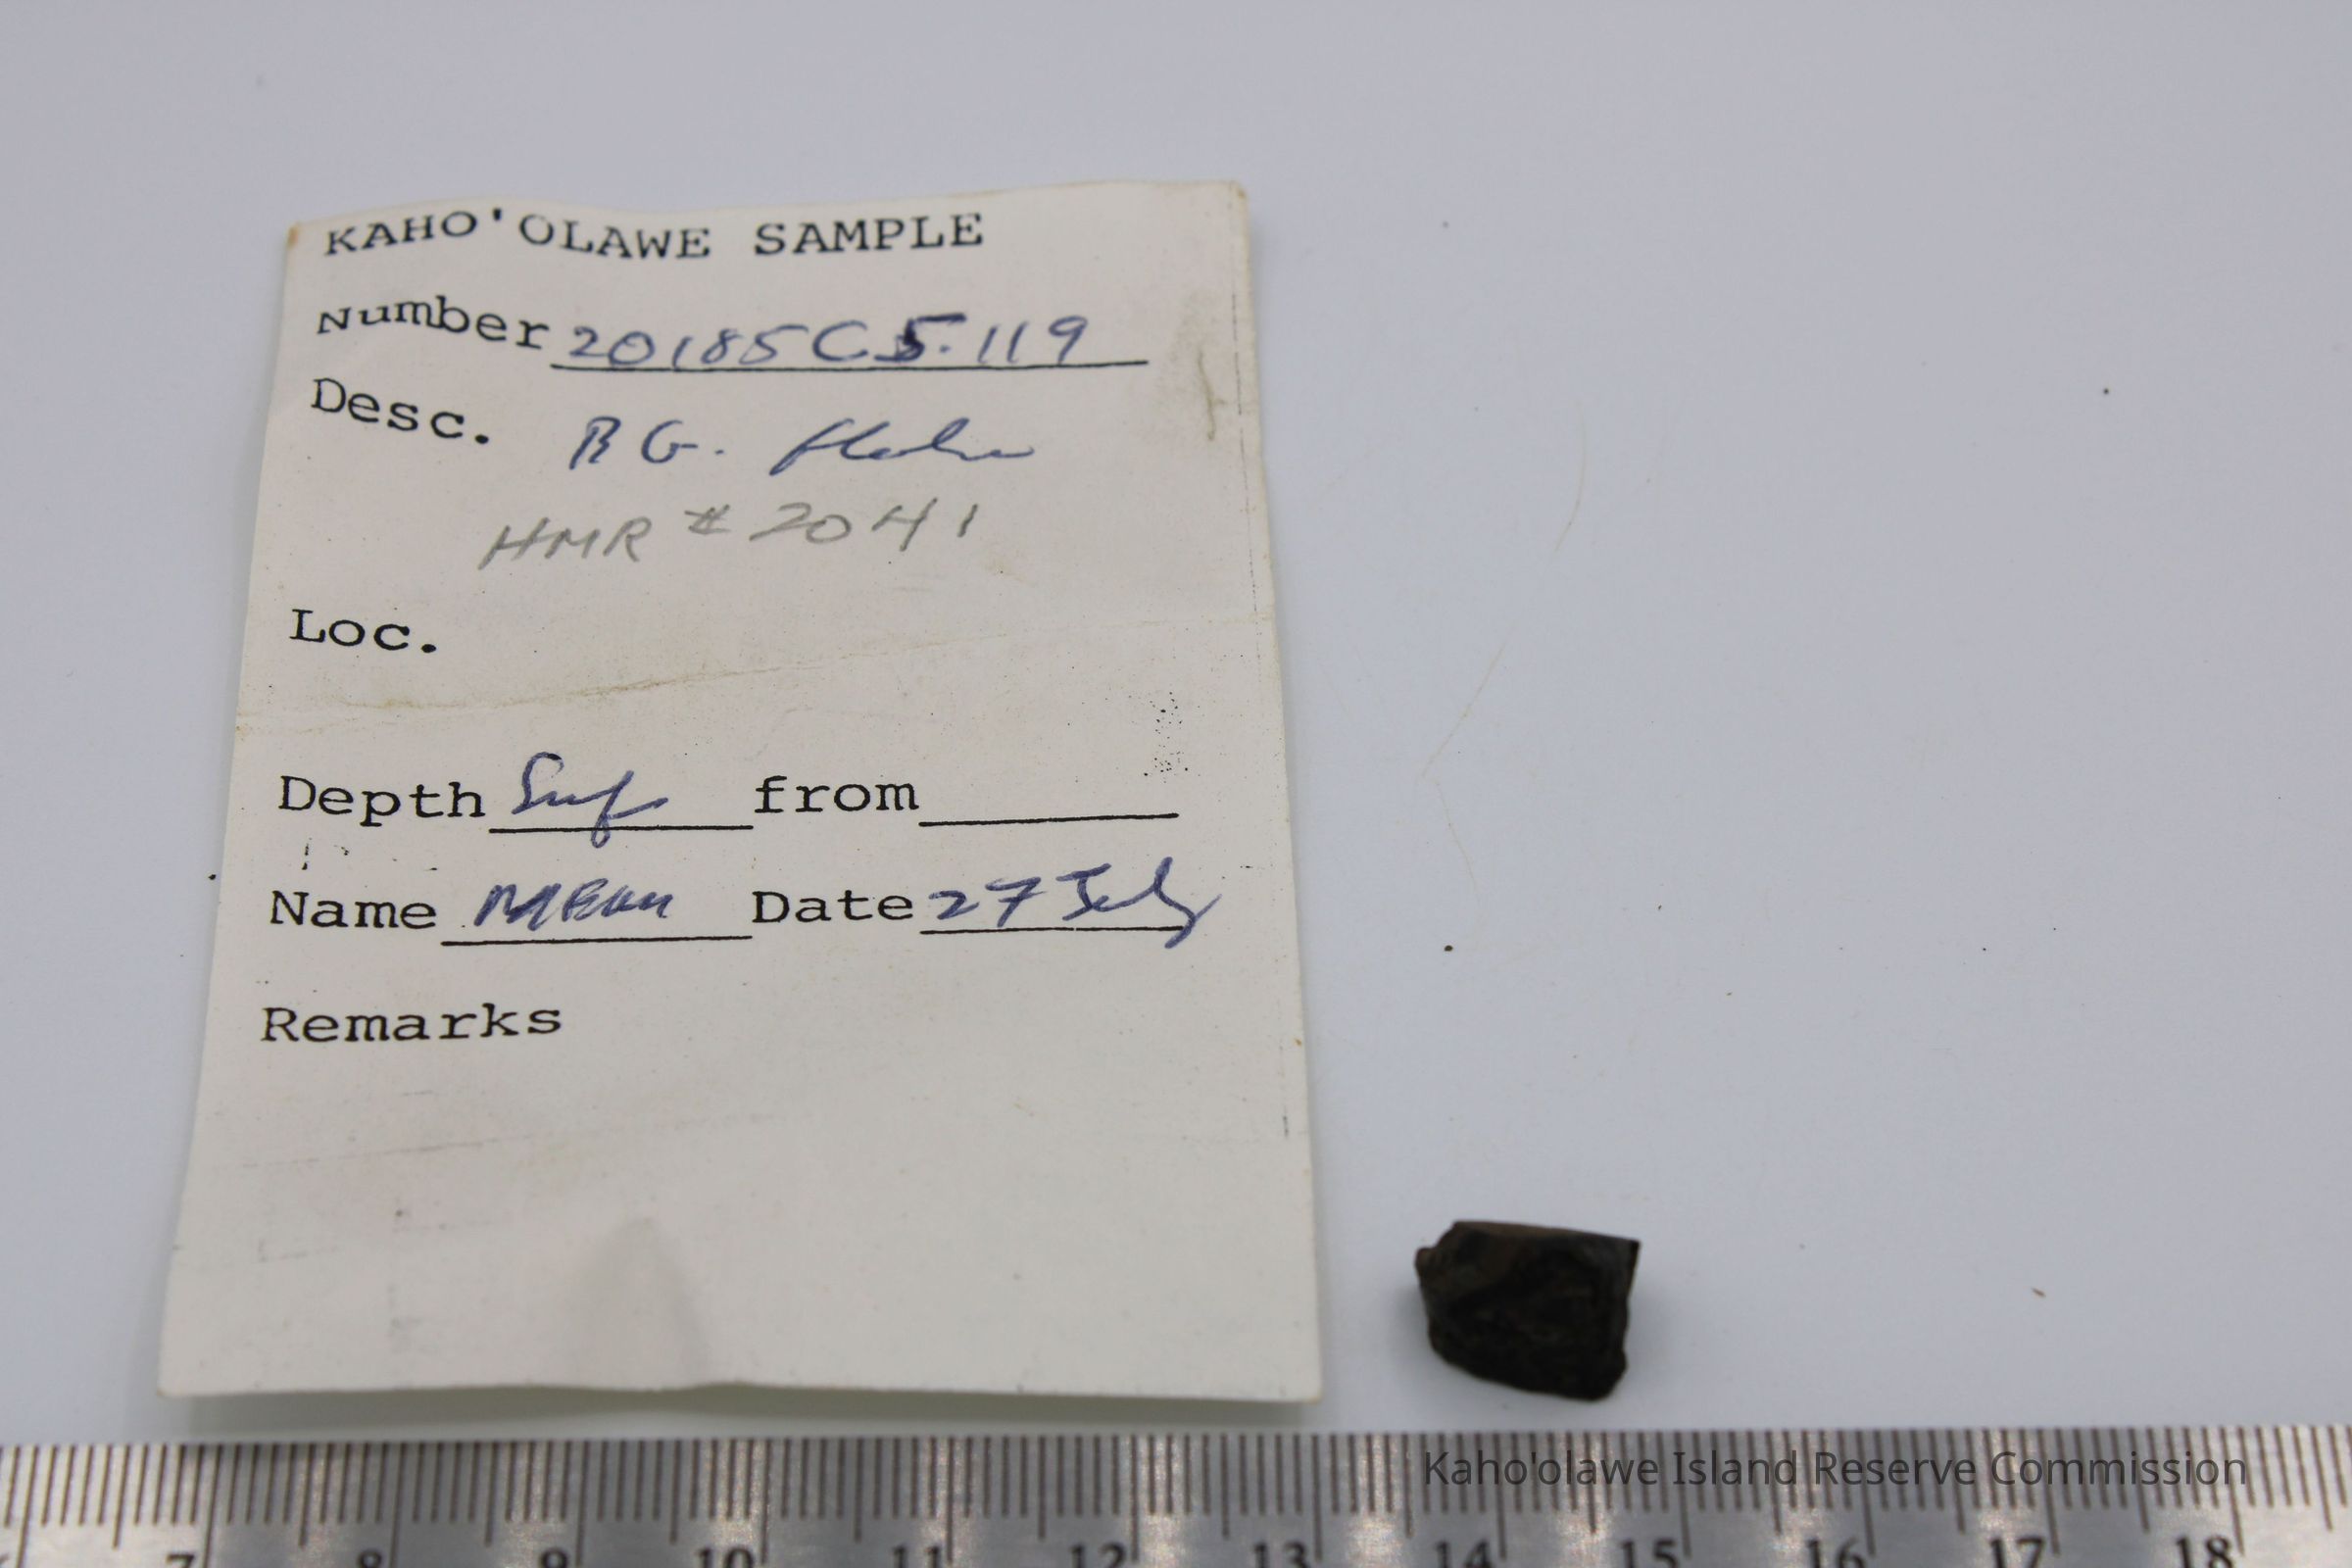 KAHO'OLAWE SAMPLE
Number 20185C5.119
Desc. BG. flake
HMR # 2041
Loc.
Depth Surf from
Name Date 27 July
Remarks
Kaho'olawe Island Reserve Commission
7 8 9 10 11 12 13 14 15 16 17 18